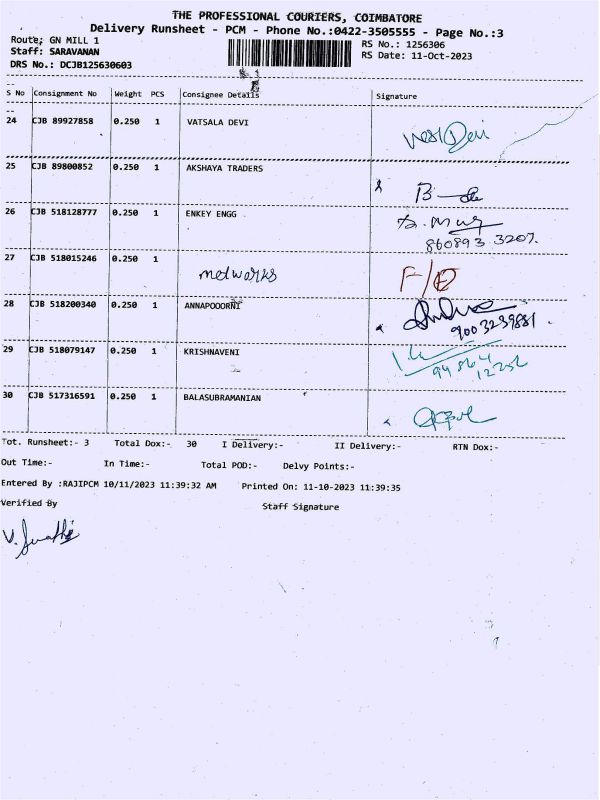 THE PROFESSIONAL COURIERS, COIMBATORE
Delivery Runsheet - PCM - Phone No.:0422-3505555 - Page No.:3
Route; GN MILL 1
RS No.: 1256306
Staff: SARAVANAN
RS Date: 11-Oct-2023
DRS No.: DCJB125630603
S No Consignment No Weight PCS Consignee Details Signature
24 CJB 89927858 0.250 1 VATSALA DEVI
25 CJB 89800852 0.250 1 AKSHAYA TRADERS
26 CJB 518128777 0.250 1 ENKEY ENGG
860893 3207.
27 CJB 518015246 0.250 1
metworks F/D
28 CJB 518200340 0.250 1 ANNAPOOORNI
9003239881.
29 CJB 518079147 0.250 1 KRISHNAVENI
94864
12256
30 CJB 517316591 0.250 1 BALASUBRAMANIAN
Tot. Runsheet:- 3 Total Dox:- 30 I Delivery:- II Delivery:- RTN Dox:-
Out Time:- In Time:- Total POD:- Delvy Points:-
Entered By :RAJIPCM 10/11/2023 11:39:32 AM Printed On: 11-10-2023 11:39:35
Verified By Staff Signature